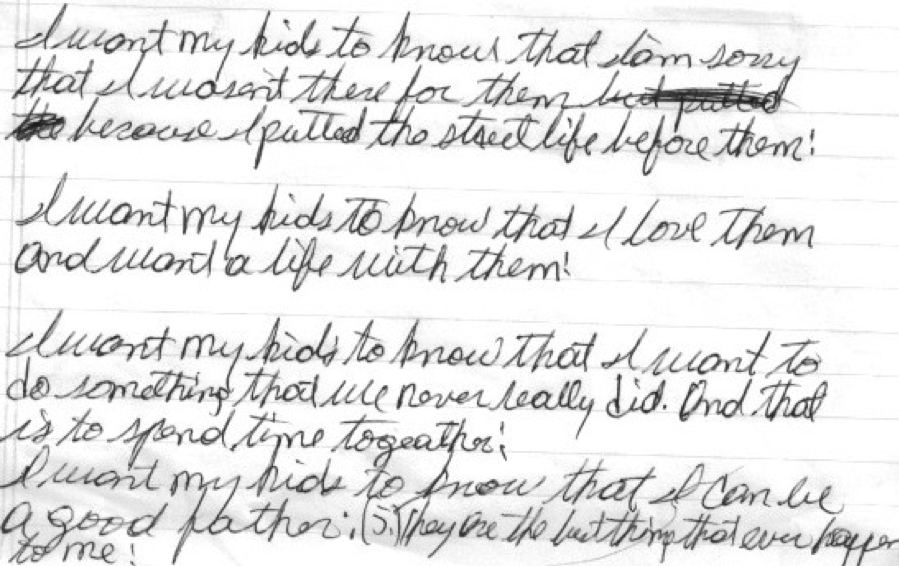 I want my kids to know that I am sorry
that I wasn't there for them but putted
the because I putted the street life before them!
I want my kids to know that I love them
and want a life with them!
I want my kids to know that I want to
do something that we never really did. And that
is to spend time togeather!
I want my kids to know that I can be
a good father! (5.) They are the best thing that ever happen
to me!